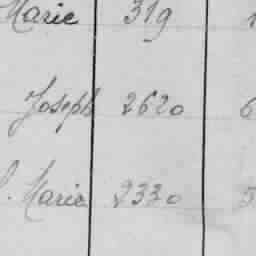 Marie 319
Joseph 2620 6
Maria 2330 5